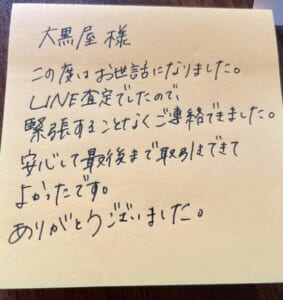 大黒屋 様
この度はお世話になりました。
LINE査定でしたので、
緊張することなくご連絡できました。
安心して最後まで取引きできて
よかったです。
ありがとうございました。